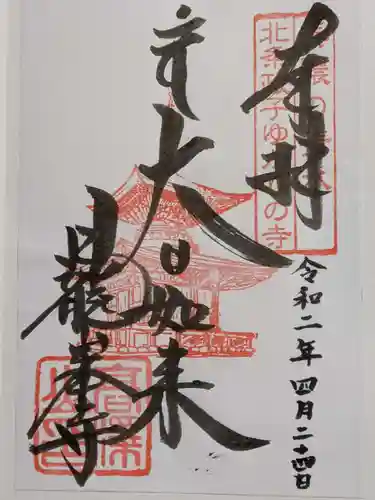 奉拝
北条政子ゆかりの寺
令和二年四月二十四日
大日如来
日龍峯寺